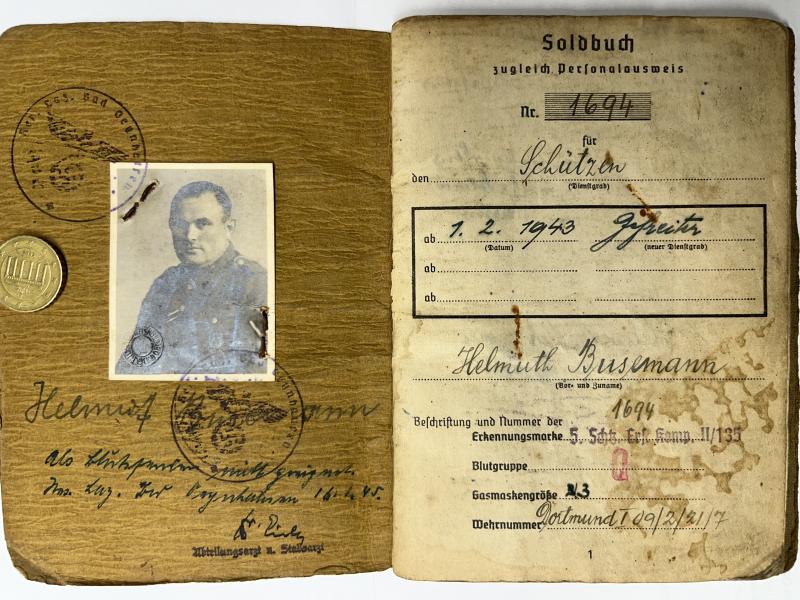 Res. Laz. Bad Oeynhausen
Helmuth Busemann
Als Blutspender nicht geeignet.
Res. Laz. Bad Oeynhausen 16.1.45.
Abteilungsarzt u. Stabsarzt
Soldbuch
zugleich Personalausweis
Nr. 1694
für
den Schützen
(Dienstgrad)
ab 1. 2. 1943 Gefreiter
(Datum) (neuer Dienstgrad)
ab
ab
Helmuth Busemann
(Vor- und Zuname)
1694
Beschriftung und Nummer der
Erkennungsmarke S. Schtz. Ers. Komp. II/135
Blutgruppe
Gasmaskengröße 3
Wehrnummer Dortmund I 09/2/21/7
1